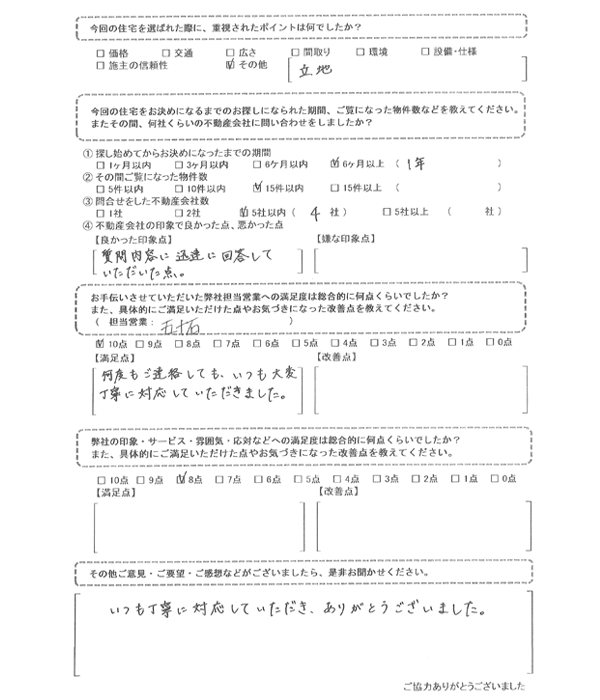 今回の住宅を選ばれた際に、重視されたポイントは何でしたか?
□ 価格 □ 交通 □ 広さ □ 間取り □ 環境 □ 設備・仕様
□ 施主の信頼性 ☑ その他 立地
今回の住宅をお決めになるまでのお探しになられた期間、ご覧になった物件数などを教えてください。
またその間、何社くらいの不動産会社に問い合わせをしましたか?
① 探し始めてからお決めになったまでの期間
□ 1ヶ月以内 □ 3ヶ月以内 □ 6ケ月以内 ☑ 6ヶ月以上 ( 1年 )
② その間ご覧になった物件数
□ 5件以内 □ 10件以内 ☑ 15件以内 □ 15件以上 ( )
③ 問合せをした不動産会社数
□ 1社 □ 2社 ☑ 5社以内 ( 4 社 ) □ 5社以上 ( 社 )
④ 不動産会社の印象で良かった点、悪かった点
【良かった印象点】 【嫌な印象点】
質問内容に迅速に回答して
いただいた点。
お手伝いさせていただいた弊社担当営業への満足度は総合的に何点くらいでしたか?
また、具体的にご満足いただけた点やお気づきになった改善点を教えてください。
( 担当営業: 五十石 )
☑ 10点 □ 9点 □ 8点 □ 7点 □ 6点 □ 5点 □ 4点 □ 3点 □ 2点 □ 1点 □ 0点
【満足点】 【改善点】
何度もご連絡しても、いつも大変
丁寧に対応していただきました。
弊社の印象・サービス・雰囲気・応対などへの満足度は総合的に何点くらいでしたか?
また、具体的にご満足いただけた点やお気づきになった改善点を教えてください。
□ 10点 □ 9点 ☑ 8点 □ 7点 □ 6点 □ 5点 □ 4点 □ 3点 □ 2点 □ 1点 □ 0点
【満足点】 【改善点】
その他ご意見・ご要望・ご感想などがございましたら、是非お聞かせください。
いつも丁寧に対応していただき、ありがとうございました。
ご協力ありがとうございました